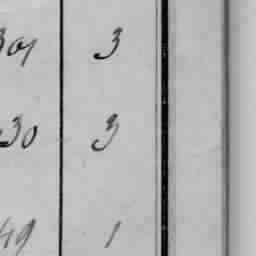 309 3
30 3
49 1